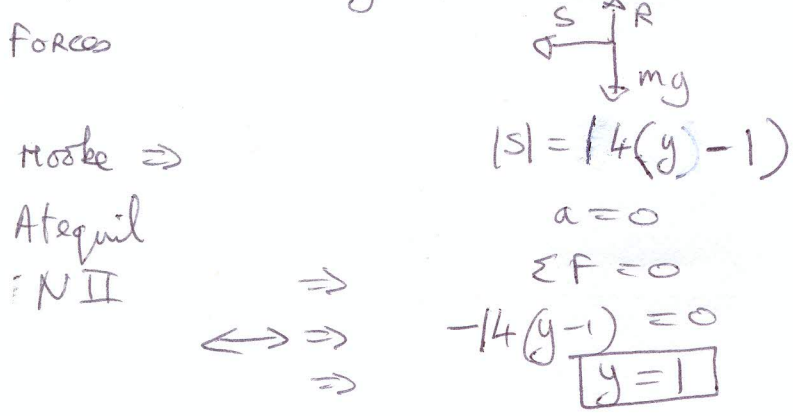 Forces
S R
mg
Hooke ⇒ |S| = 14(y - 1)
At equil a = 0
NII ⇒ ΣF = 0
↔ ⇒ -14(y-1) = 0
⇒ y = 1